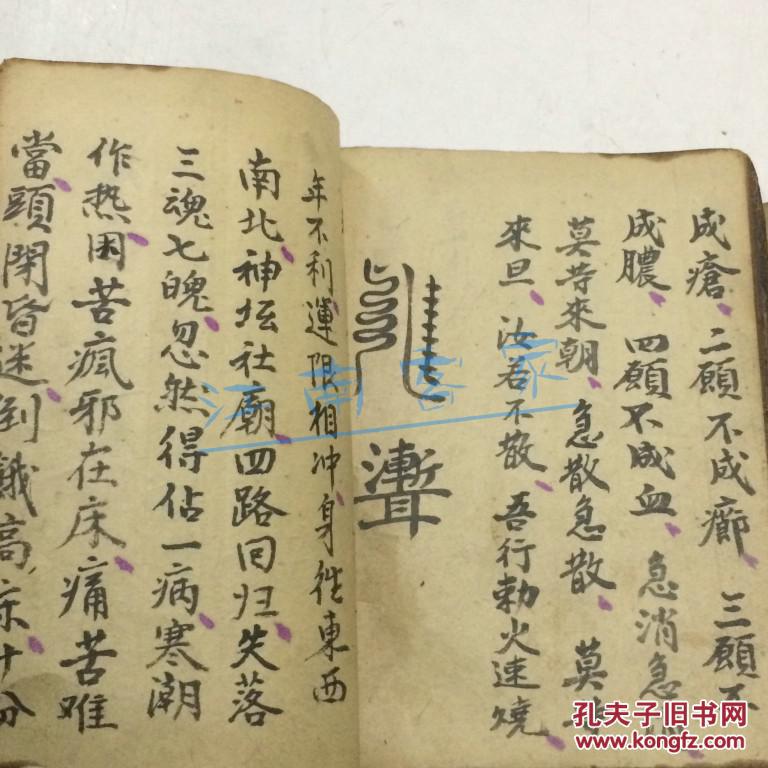 成瘡、二願不成癤、三願不
成膿、四願不成血、急消急
莫等來朝、急散急散、莫
來旦、汝若不散、吾行勅火速燒、
聻
年不利運限相冲、身徃東西
南北、神坛社廟、四路回归、失落
三魂七魄、忽然得佔一病、寒潮
作热、困苦瘋邪在床、痛苦难
當、頭閑昏迷、到 高、床、十分
江南客家
孔夫子旧书网
www.kongfz.com